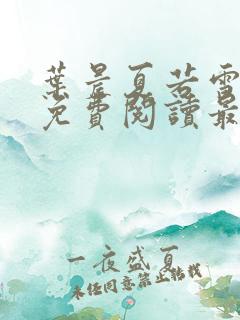 葉晨夏若雪
免費閱讀最
一夜盛夏
未經同意禁止轉載